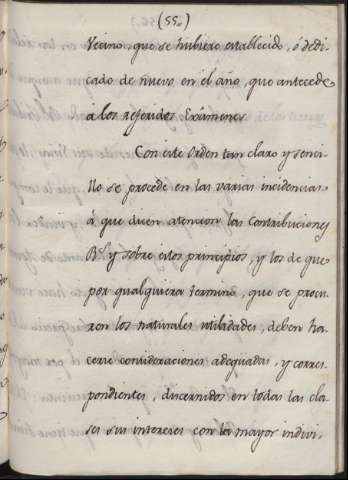 (55.)
Vecino, que se hubiere establecido, ó dedi-
cado de nuevo en el año, que antecede
á los referidos Exámenes
Con este Orden tan claro y senci-
llo se procede en las varias incidencias
á que dicen atencion las Contribuciones
R.s y sobre estos principios, y los de que
por qualquiera termino, que se procu-
ren los naturales utilidades, deben ha-
cerse consideraciones adequadas, y corres-
pondientes, discernidos en todas las cla-
ses sus intereses con la mayor indivi-